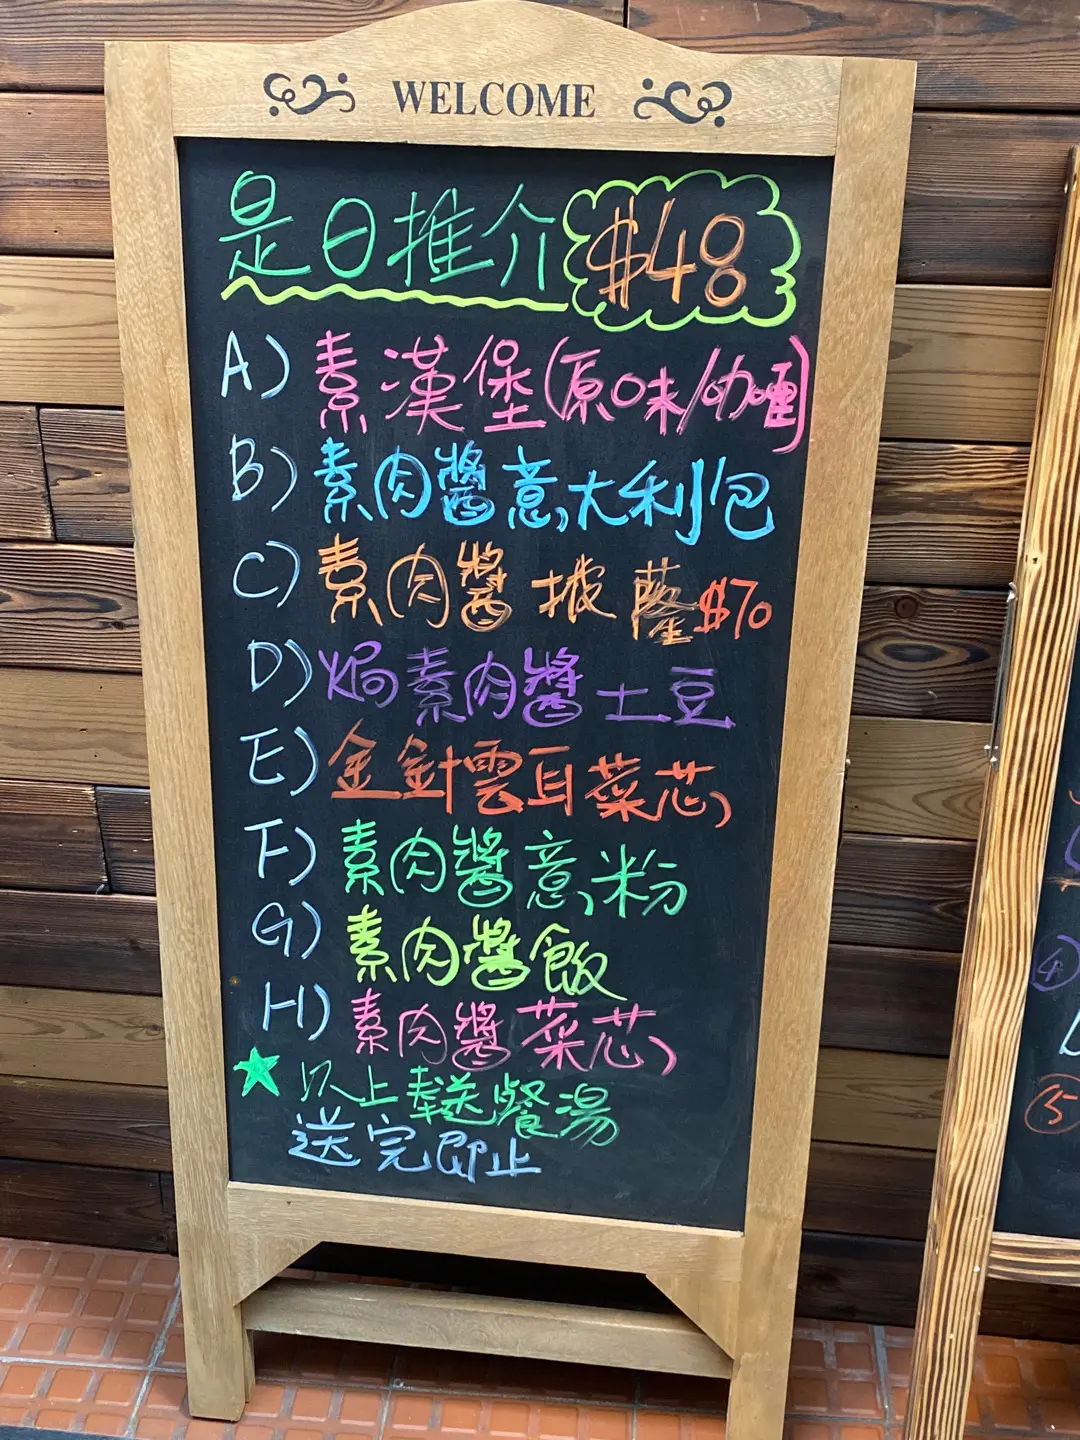 WELCOME
是日推介 $48
A) 素漢堡(原味/咖喱)
B) 素肉醬意大利包
C) 素肉醬披薩$70
D) 焗素肉醬土豆
E) 金針雲耳菜芯
F) 素肉醬意粉
G) 素肉醬飯
H) 素肉醬菜芯
★ 以上奉送餐湯
送完即止
④
⑤